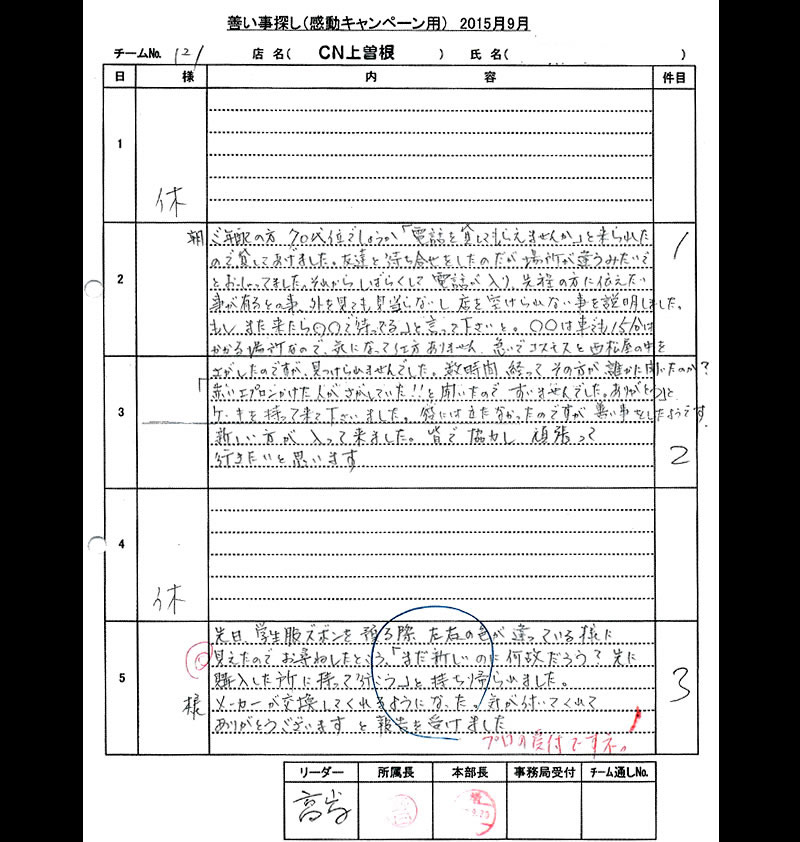 善い事探し(感動キャンペーン用) 2015年9月
チームNo. 121 店 名( CN上曽根 ) 氏 名( )
日 様 内 容 件目
1 休
2 朝 1
ご年配の方 70代位でしょうか「電話を貸してもらえませんか」と来られた
ので貸してあげました。友達と待ち合せをしたのだが場所が違うみたいで
とおっしゃってました。それからしばらくして電話が入り、先程の方に伝えたい
事が有るとの事、外を見ても見当らないし店を空けられない事を説明しました。
もし、また来たら〇〇で待ってる」と言って下さいと。〇〇は車でも15分は
かかる場所なので、気になって仕方ありません。急いでコスモスと西松屋の中を
3 2
さがしたのですが、見つけられませんでした。数時間経って その方が誰かに聞いたのか?
「赤いエプロンかけた人がさがしていた!!と聞いたので すいませんでした。ありがとう」と
ケーキを持って来て下さいました。役には立たなかったのですが善い事をしたようです。
新しい方が入って来ました。皆で協力し 頑張って
行きたいと思います
4 休
5 様 3
先日 学生服ズボンを預る際 左右の色が違っている様に
見えたので お尋ねしたところ、「まだ新しいのに何故だろう?先に
購入した所に持って行こう」と持ち帰られました。
メーカーが交換してくれるようになった。気が付いてくれて
ありがとうございます と報告を受けました
プロの受付ですネ。
リーダー 所属長 本部長 事務局受付 チーム通しNo.